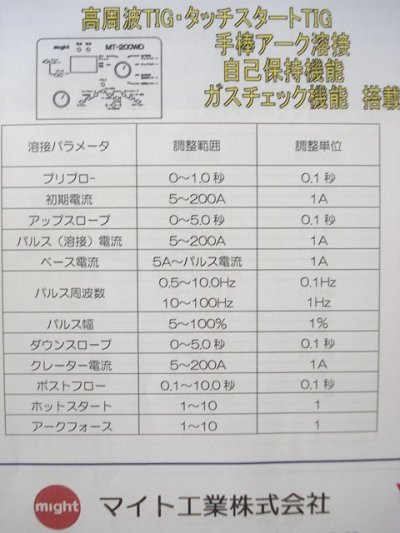 高周波TIG・タッチスタートTIG
手棒アーク溶接
自己保持機能
ガスチェック機能 搭載
might
MT-200WD
溶接パラメータ 調整範囲 調整単位
プリフロー 0〜1.0秒 0.1秒
初期電流 5〜200A 1A
アップスロープ 0〜5.0秒 0.1秒
パルス（溶接）電流 5〜200A 1A
ベース電流 5A〜パルス電流 1A
パルス周波数 0.5〜10.0Hz 0.1Hz
10〜100Hz 1Hz
パルス幅 5〜100% 1%
ダウンスロープ 0〜5.0秒 0.1秒
クレーター電流 5〜200A 1A
ポストフロー 0.1〜10.0秒 0.1秒
ホットスタート 1〜10 1
アークフォース 1〜10 1
might マイト工業株式会社